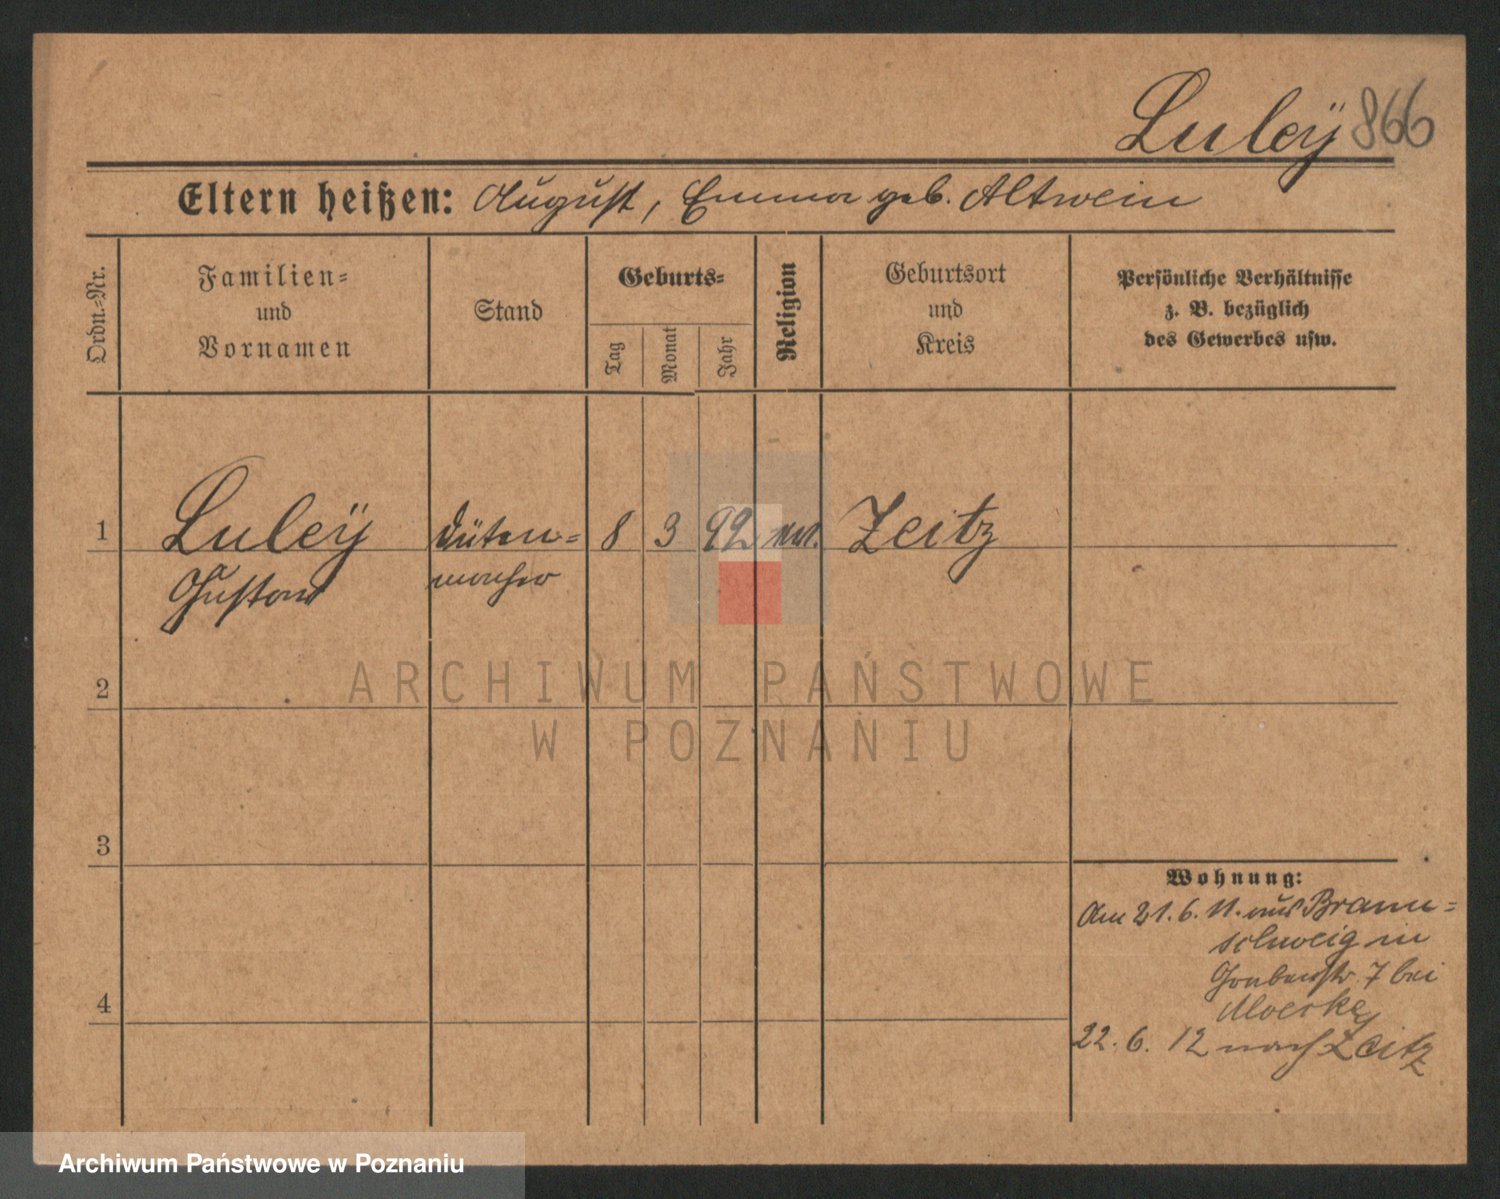 Luley 866
Eltern heißen: August, Emma geb. Altwein
Ordn.-Nr.
Familien-
und
Vornamen
Stand
Geburts-
Tag
Monat
Jahr
Religion
Geburtsort
und
Kreis
Persönliche Verhältnisse
z. B. bezüglich
des Gewerbes usw.
1 Luley Düten- 8 3 92 Zeitz
Gustav macher
2
3
4
Wohnung:
Am 21.6.11. aus Braun-
schweig in
7 bei
22.6.12 nach Zeitz
ARCHIWUM PAŃSTWOWE
W POZNANIU
Archiwum Państwowe w Poznaniu